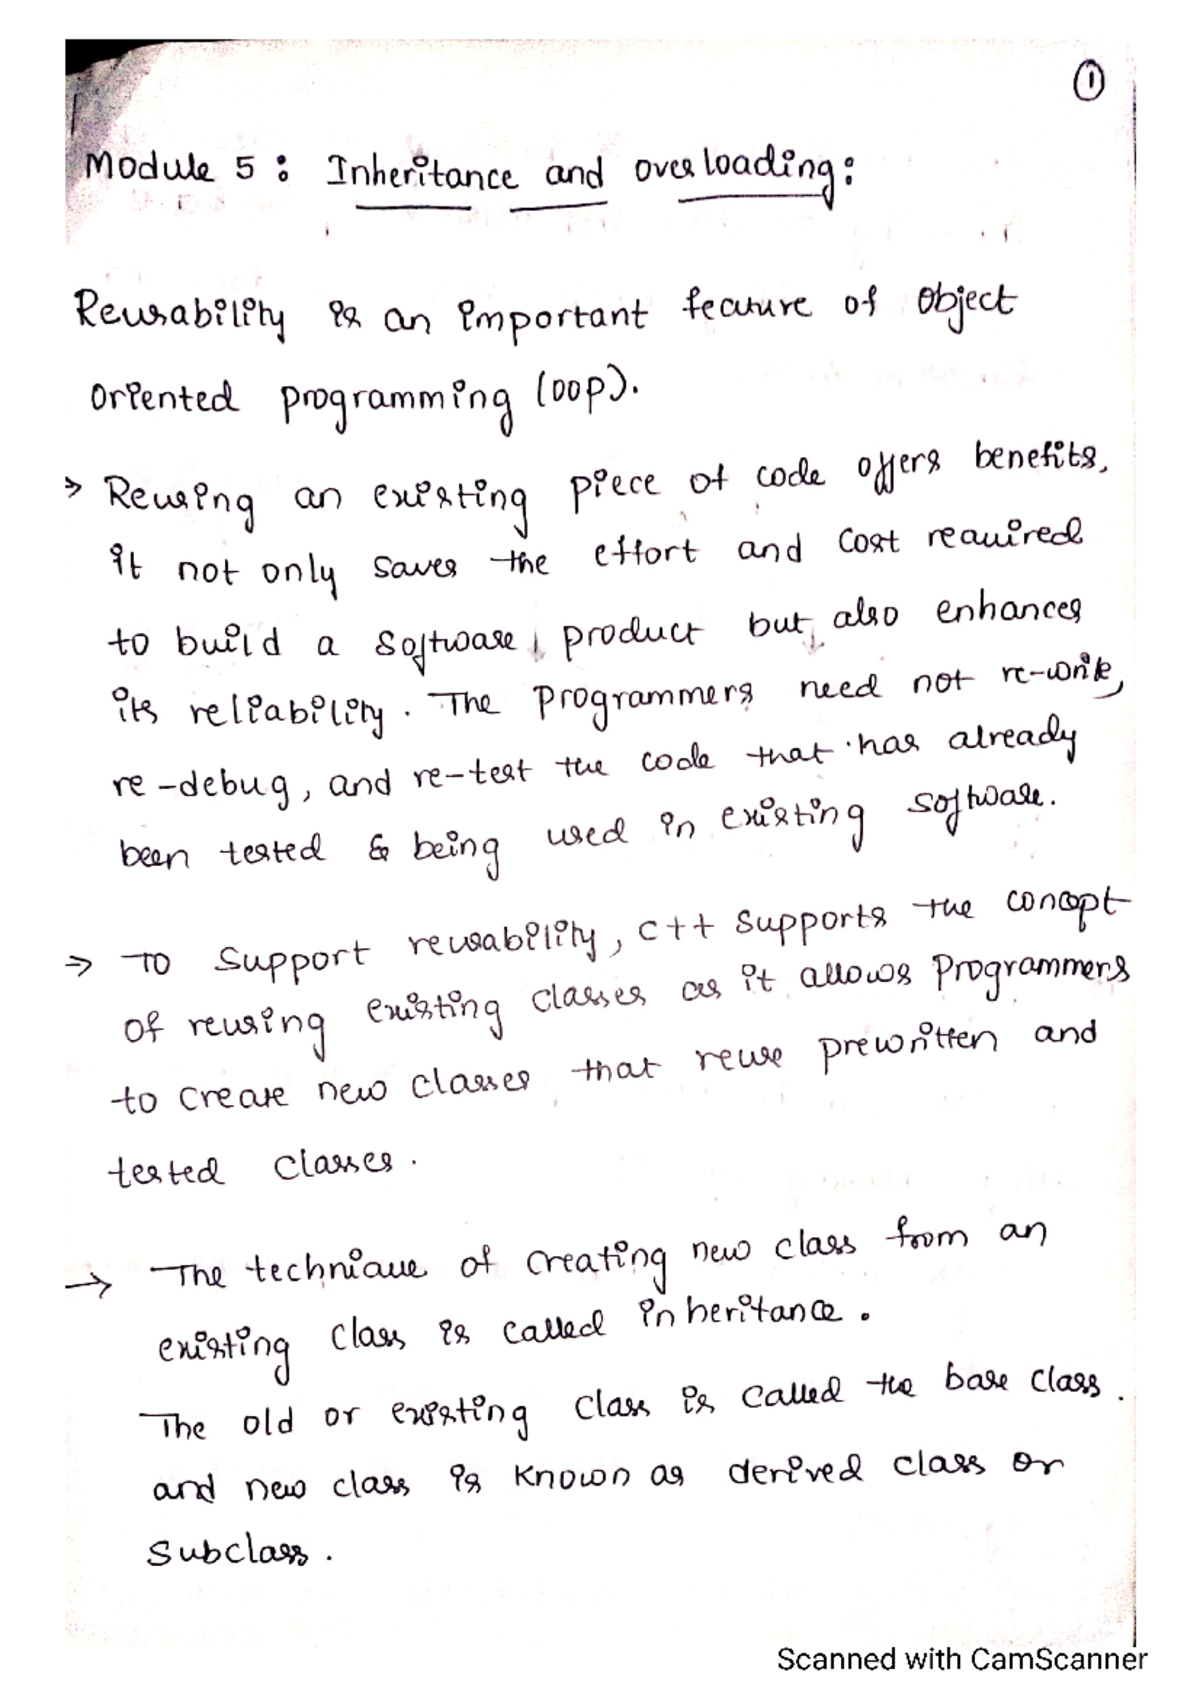 ①
Module 5 : Inheritance and overloading :
Reusability is an important feature of object
oriented programming (OOP).
> Reusing an existing piece of code offers benefits,
it not only saves the effort and cost required
to build a software product but also enhances
its reliability. The programmers need not re-write,
re-debug, and re-test the code that has already
been tested & being used in existing software.
⇒ To support reusability, C++ supports the concept
of reusing existing classes as it allows programmers
to create new classes that reuse prewritten and
tested classes.
→ The technique of creating new class from an
existing class is called inheritance.
The old or existing class is called the base class.
and new class is known as derived class or
subclass.
Scanned with CamScanner